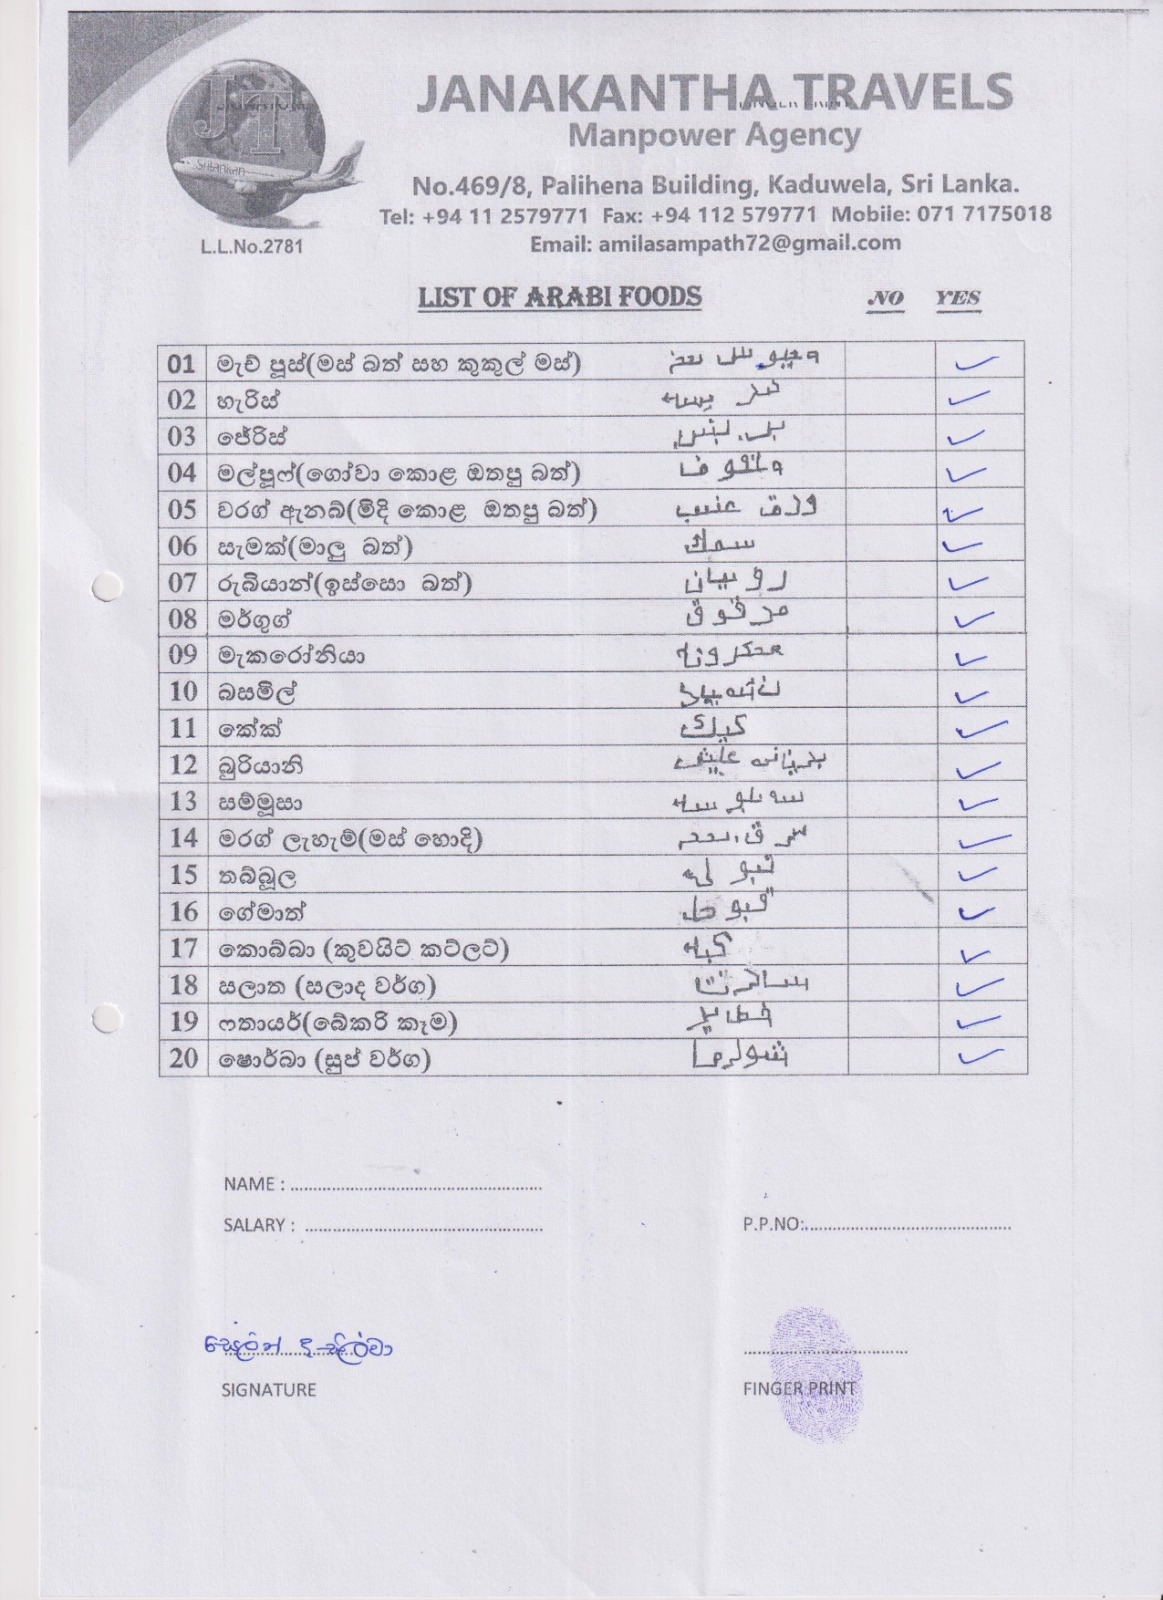 JT
SriLankan
L.L.No.2781
JANAKANTHA TRAVELS
Manpower Agency
No.469/8, Palihena Building, Kaduwela, Sri Lanka.
Tel: +94 11 2579771 Fax: +94 112 579771 Mobile: 071 7175018
Email: amilasampath72@gmail.com
LIST OF ARABI FOODS NO YES
01 මැච් පූස්(මස් බත් සහ කුකුල් මස්)
02 හැරිස්
03 ජේරිස්
04 මල්පූෆ්(ගෝවා කොළ ඔතපු බත්)
05 වරග් ඇනබ්(මිදි කොළ ඔතපු බත්) ورق عنب
06 සැමක්(මාලු බත්) سمك
07 රුබියාන්(ඉස්සො බත්) روبيان
08 මර්ගුග් مرقوق
09 මැකරෝනියා معكرونه
10 බසමිල්
11 කේක් كيك
12 බුරියානි
13 සම්මූසා
14 මරග් ලැහැම්(මස් හොදි)
15 තබ්බූල
16 ගේමාත්
17 කොබ්බා (කුවයිට් කට්ලට්) كبه
18 සලාත (සලාද වර්ග)
19 ෆතායර්(බේකරි කෑම)
20 ෂොර්බා (සුප් වර්ග)
NAME :
SALARY : P.P.NO:
සෙලින් ද සිල්වා
SIGNATURE FINGER PRINT